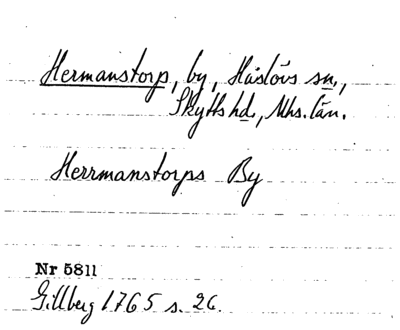 Hermanstorp, by, Håslövs sn.,
Skytts hd., Mhs. län.
Herrmanstorps By
Nr 5811
Gillberg 1765 s. 26.